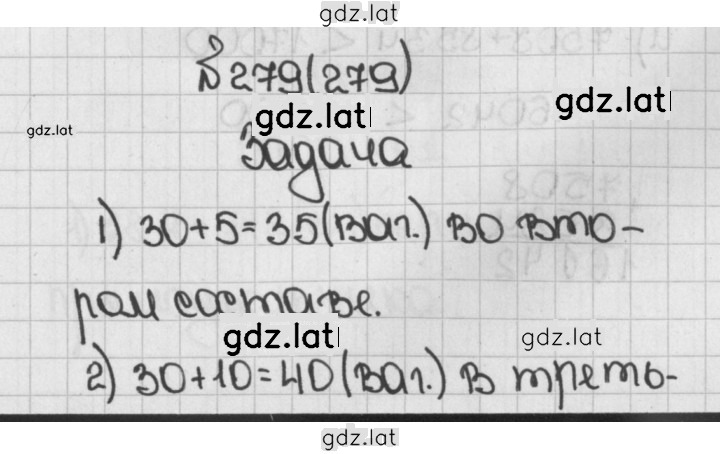 gdz.lat
№ 279(279)
gdz.lat
gdz.lat
gdz.lat
Задача
1) 30+5=35(ваг.) во вто-
ром составе.
gdz.lat
gdz.lat
2) 30+10=40(ваг.) в треть-
gdz.lat